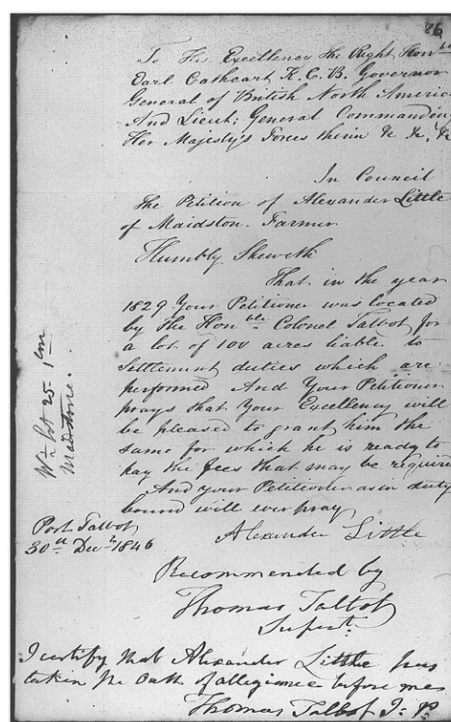 86
To His Excellency the Right Honble
Earl Cathcart K.C.B. Governor
General of British North America
And Lieut: General Commanding
Her Majesty's Forces therin &c &c, &c
In Council
The Petition of Alexander Little
of Maidston. Farmer.
Humbly Sheweth
That in the year
1829 Your Petitioner was located
by the Honble. Colonel Talbot for
a lot of 100 acres liable to
Settlement duties which are
performed And Your Petitioner
prays that Your Excellency will
be pleased to grant him the
same for which he is ready to
pay the fees that may be require
And your Petitioner as in duty
bound will ever pray
Alexander Little
Wn. lot 25. 1 con
Maidstone.
Port Talbot
30th Decr. 1846
Recommended by
Thomas Talbot
Supert.
I certify that Alexander Little has
taken the Oath of allegiance before me
Thomas Talbot J. P.